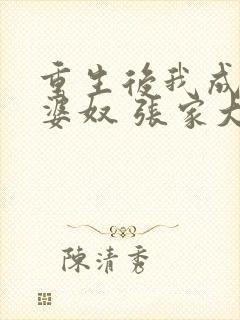 重生後我成
婆奴 張家大
陳清秀